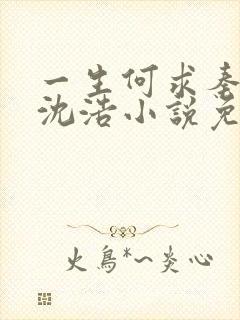 一生何求秦
沈浩小说免
火鳥*~炎心